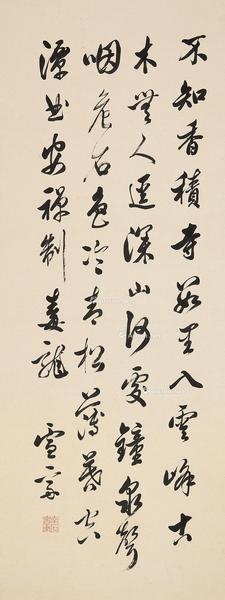 不知香積寺數里入雲峰古
木無人逕深山何處鐘泉聲
咽危石色冷青松薄暮空
潭曲安禪制毒龍 雪